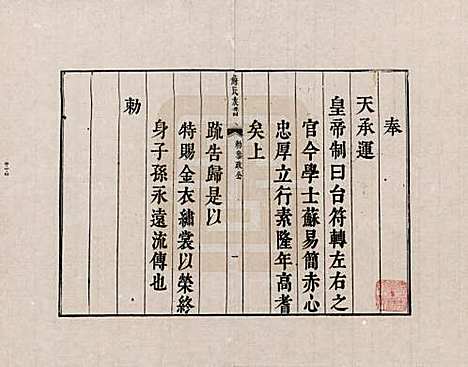 奉
天承運
皇帝制曰台符轉左右之
官今學士蘇易簡赤心
忠厚立行素隆年高耆
矣上
蘇氏族譜
勅參政公
一
疏告歸是以
特賜金衣繡裳以榮終
身子孫永遠流傳也
勅